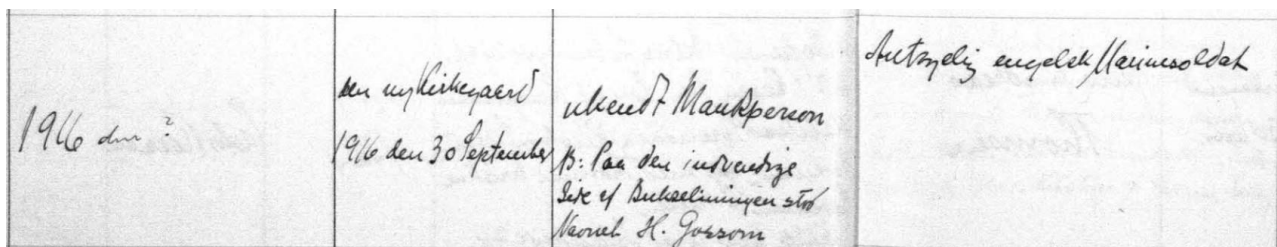 1916 den ?
den ny Kirkegaard
1916 den 30 September
ukendt Mandsperson
B: Paa den indvendige
Side af Bukselinningen stod
Navnet H. Gossom
Antagelig engelsk Marinesoldat